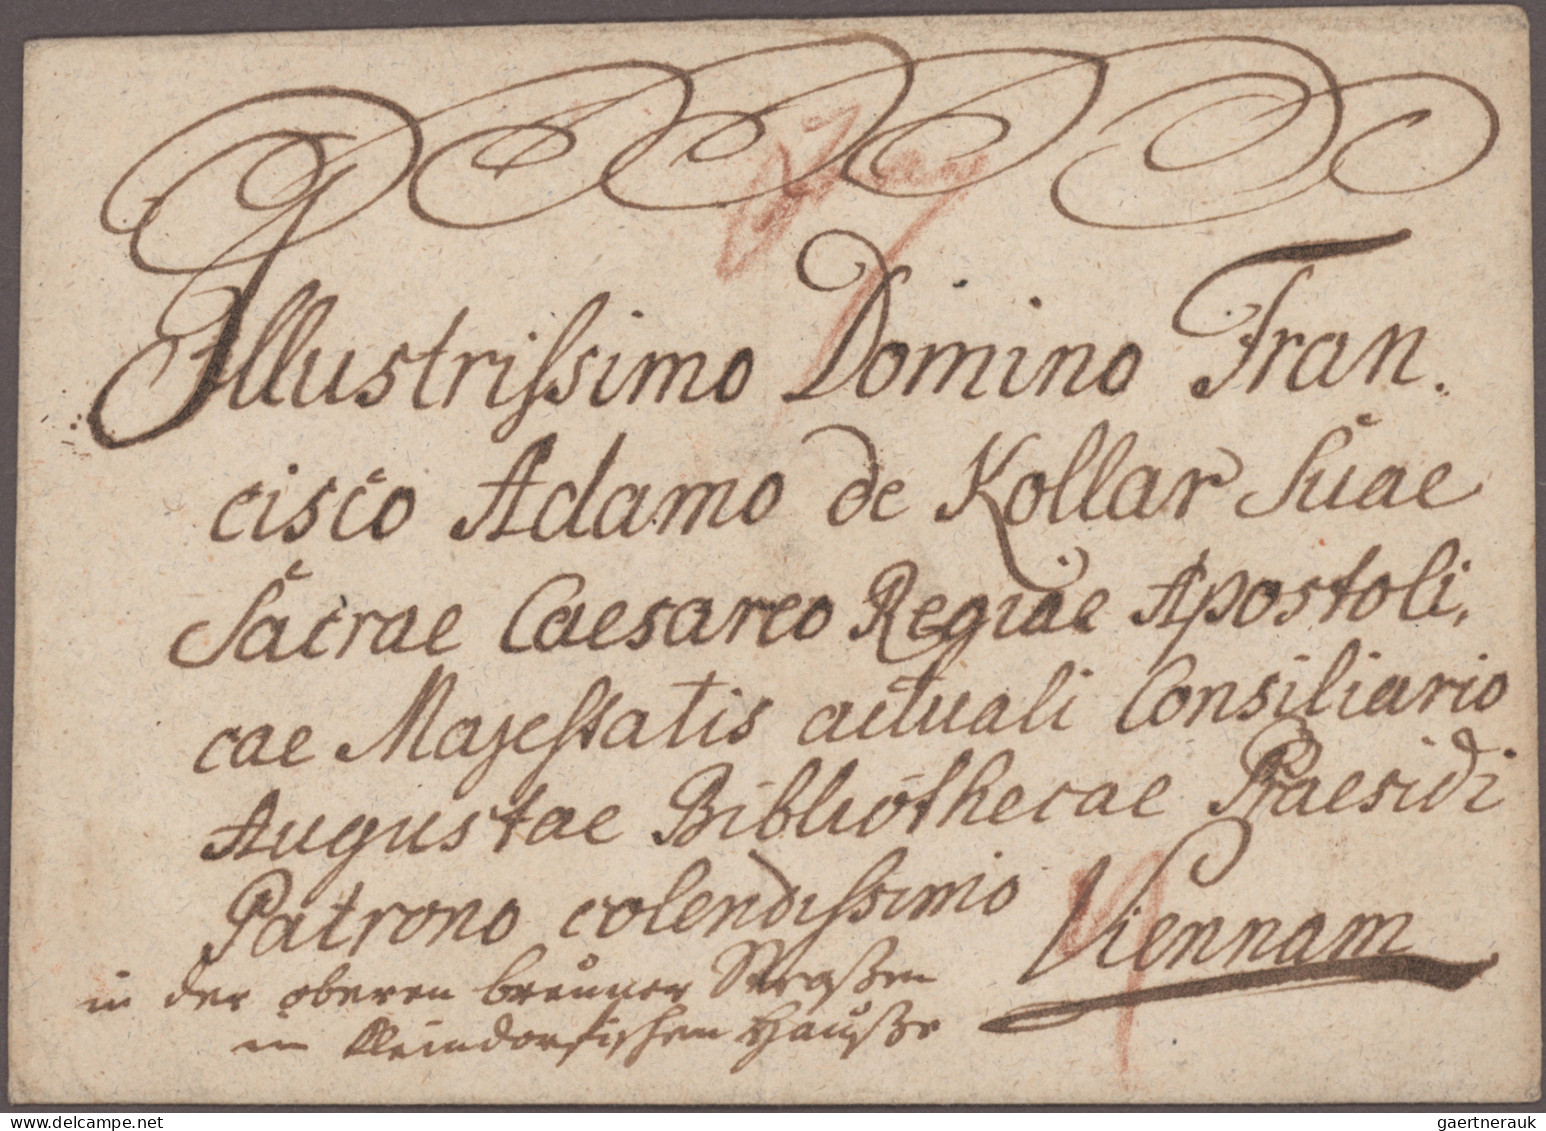 Illustrissimo Domino Fran.
cisco Adamo de Kollar Suae
Sacrae Caesareo Regiae Apostoli,
cae Majestatis actuali Consiliario
Augustae Bibliothecae Praesidi
Patrono colendissimo Viennam
in der oberen breüner Straßen
in Kleindorfischen Hauße
gaertnerauk